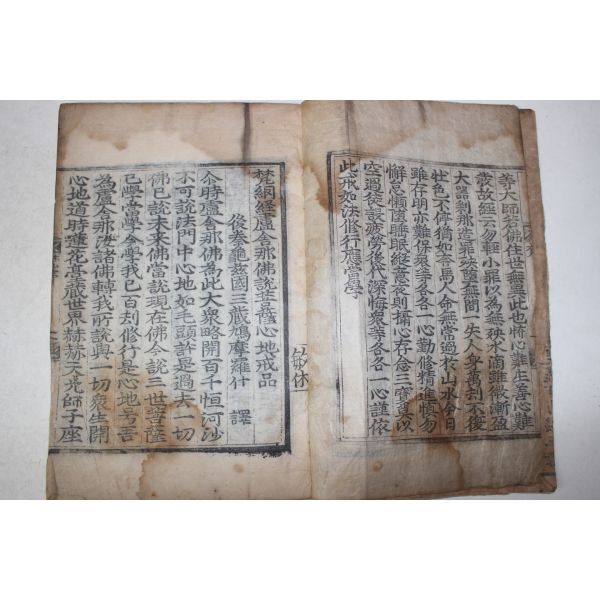 等大師若佛住世無異此也怖心難生善心難
發故經云勿輕小罪以為無殃水滴雖微漸盈
大器剎那造罪殃墮無間一失人身萬劫不復
壯色不停猶如奔馬人命無常過於山水今日
雖存明亦難保衆等各各一心勤修精進慎勿
懈怠懶墮睡眠縱意夜則攝心存念三寶莫以
空過徒設疲勞後代深悔衆等各各一心謹依
此戒如法修行應當學
梵網經盧舍那佛說菩薩心地戒品
後秦龜玆國三藏鳩摩羅什 譯
尒時盧舍那佛為此大衆略開百千恒河沙
不可說法門中心地如毛頭許是過去一切
佛已說未來佛當說現在佛今說三世菩薩
已學當學今學我已百刧修行是心地号吾
為盧舍那汝諸佛轉我所說與一切衆生開
心地道時蓮花臺藏世界赫赫天光師子座